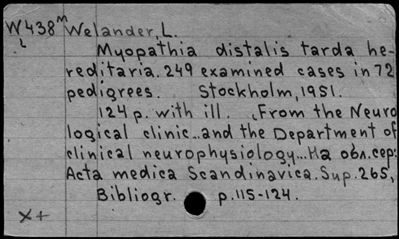 W438 м Welander, L.
L
Myopathia distalis tarda he-
reditaria. 249 examined cases in 72
pedigrees. Stockholm, 1951.
124 p. with ill. (From the Neuro
logical clinic.. and the Department of
clinical neurophysiology... На обл. сер:
Acta medica Scandinavica. Sup. 265,
Bibliogr. p. 115-124.
X+